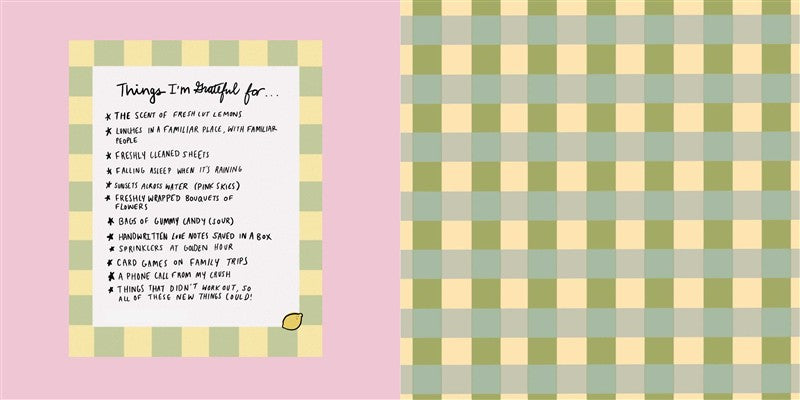 Things I'm Grateful for...
* THE SCENT OF FRESH CUT LEMONS
* LUNCHES IN A FAMILIAR PLACE, WITH FAMILIAR
PEOPLE
* FRESHLY CLEANED SHEETS
* FALLING ASLEEP WHEN IT'S RAINING
* SUNSETS ACROSS WATER (PINK SKIES)
* FRESHLY WRAPPED BOUQUETS OF
FLOWERS
* BAGS OF GUMMY CANDY (SOUR)
* HANDWRITTEN LOVE NOTES SAVED IN A BOX
* SPRINKLERS AT GOLDEN HOUR
* CARD GAMES ON FAMILY TRIPS
* A PHONE CALL FROM MY CRUSH
* THINGS THAT DIDN'T WORK OUT, SO
ALL OF THESE NEW THINGS COULD!